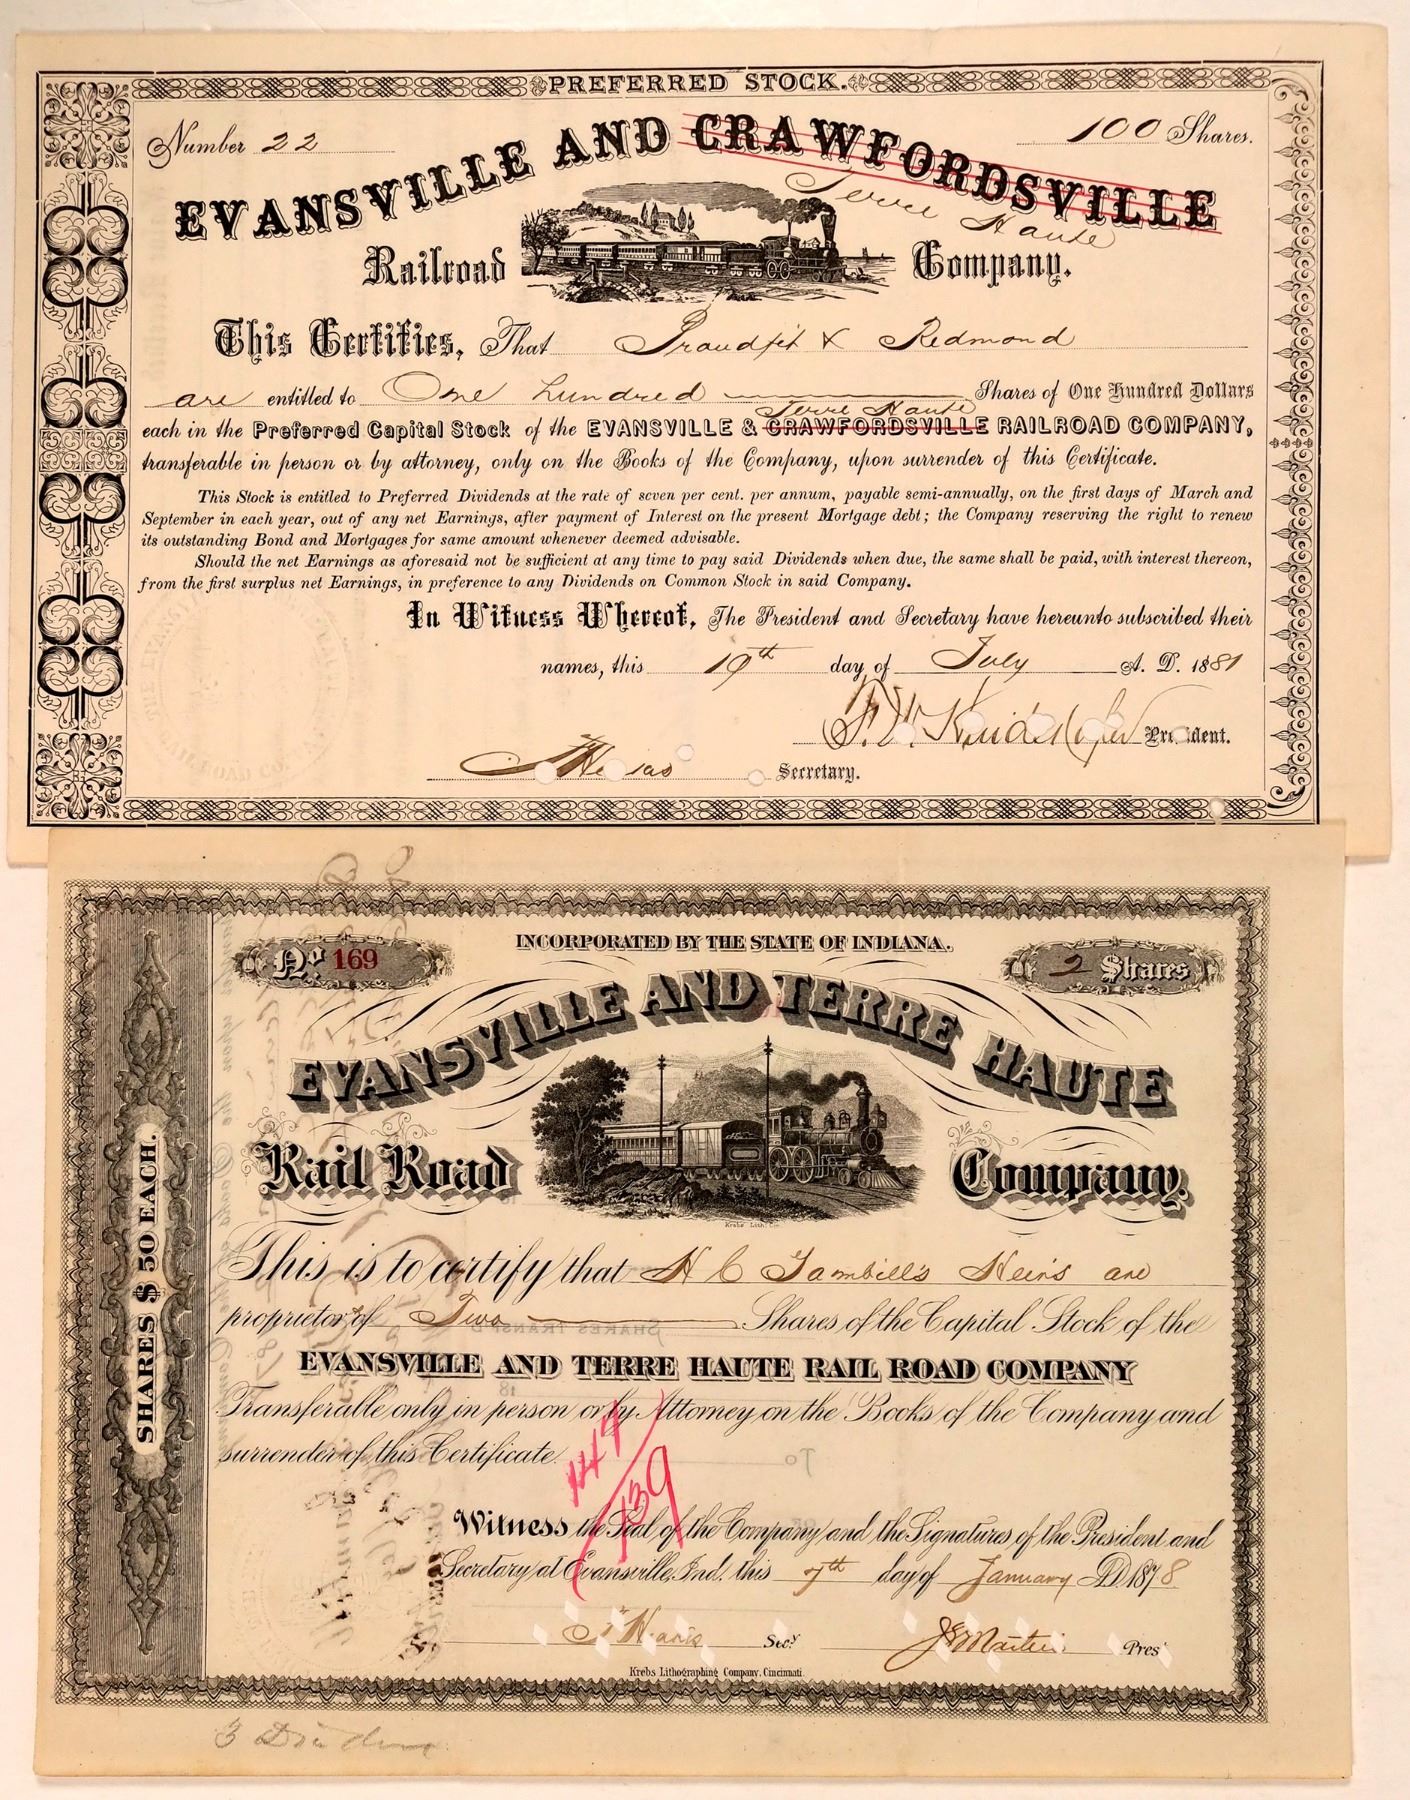 PREFERRED STOCK.
Number 22
100 Shares.
EVANSVILLE AND CRAWFORDSVILLE
Terre Haute
Railroad Company.
This Certifies, That Proudfit & Redmond
are entitled to One hundred Shares of One Hundred Dollars
Terre Haute
each in the Preferred Capital Stock of the EVANSVILLE & CRAWFORDSVILLE RAILROAD COMPANY,
transferable in person or by attorney, only on the Books of the Company, upon surrender of this Certificate.
This Stock is entitled to Preferred Dividends at the rate of seven per cent. per annum, payable semi-annually, on the first days of March and
September in each year, out of any net Earnings, after payment of Interest on the present Mortgage debt; the Company reserving the right to renew
its outstanding Bond and Mortgages for same amount whenever deemed advisable.
Should the net Earnings as aforesaid not be sufficient at any time to pay said Dividends when due, the same shall be paid, with interest thereon,
from the first surplus net Earnings, in preference to any Dividends on Common Stock in said Company.
In Witness Whereof, The President and Secretary have hereunto subscribed their
names, this 19th day of July A. D. 1881
President.
Secretary.
INCORPORATED BY THE STATE OF INDIANA.
No. 169
2 Shares
EVANSVILLE AND TERRE HAUTE
Rail Road Company.
Krebs Lith. Co.
SHARES $50 EACH.
This is to certify that H C Gambill's Heirs are
proprietor of Two Shares of the Capital Stock of the
EVANSVILLE AND TERRE HAUTE RAIL ROAD COMPANY
Transferable only in person or by Attorney on the Books of the Company and
surrender of this Certificate.
144
139
Witness the Seal of the Company and the Signatures of the President and
Secretary at Evansville, Ind. this 7th day of January AD. 1878
Secy J E Martin Pres't
Krebs Lithographing Company, Cincinnati
3